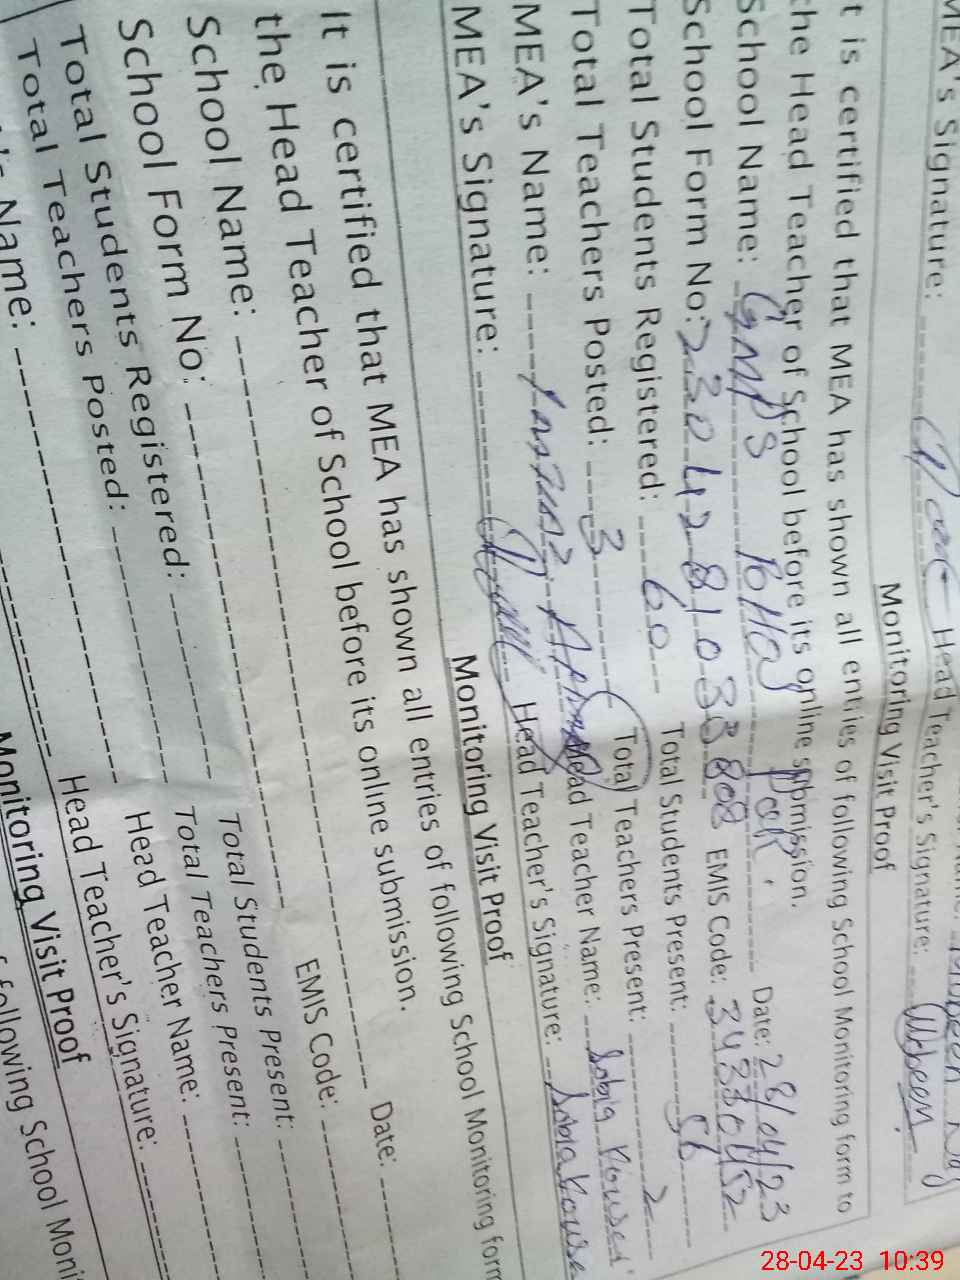 MEA's Signature: Head Teacher's Signature:
Monitoring Visit Proof
t is certified that MEA has shown all entries of following School Monitoring form to
the Head Teacher of School before its online submission.
School Name: GMPS Date: 28/04/23
School Form No: EMIS Code:
Total Students Registered: 60 Total Students Present: 56
Total Teachers Posted: 3 Total Teachers Present: 2
MEA's Name: Head Teacher Name: Sobia
MEA's Signature: Head Teacher's Signature: Sobia
Monitoring Visit Proof
It is certified that MEA has shown all entries of following School Monitoring form
the Head Teacher of School before its online submission.
School Name: Date:
School Form No: EMIS Code:
Total Students Registered: Total Students Present:
Total Teachers Posted: Total Teachers Present:
Name: Head Teacher Name:
Head Teacher's Signature:
Monitoring Visit Proof
following School Moni
28-04-23 10:39